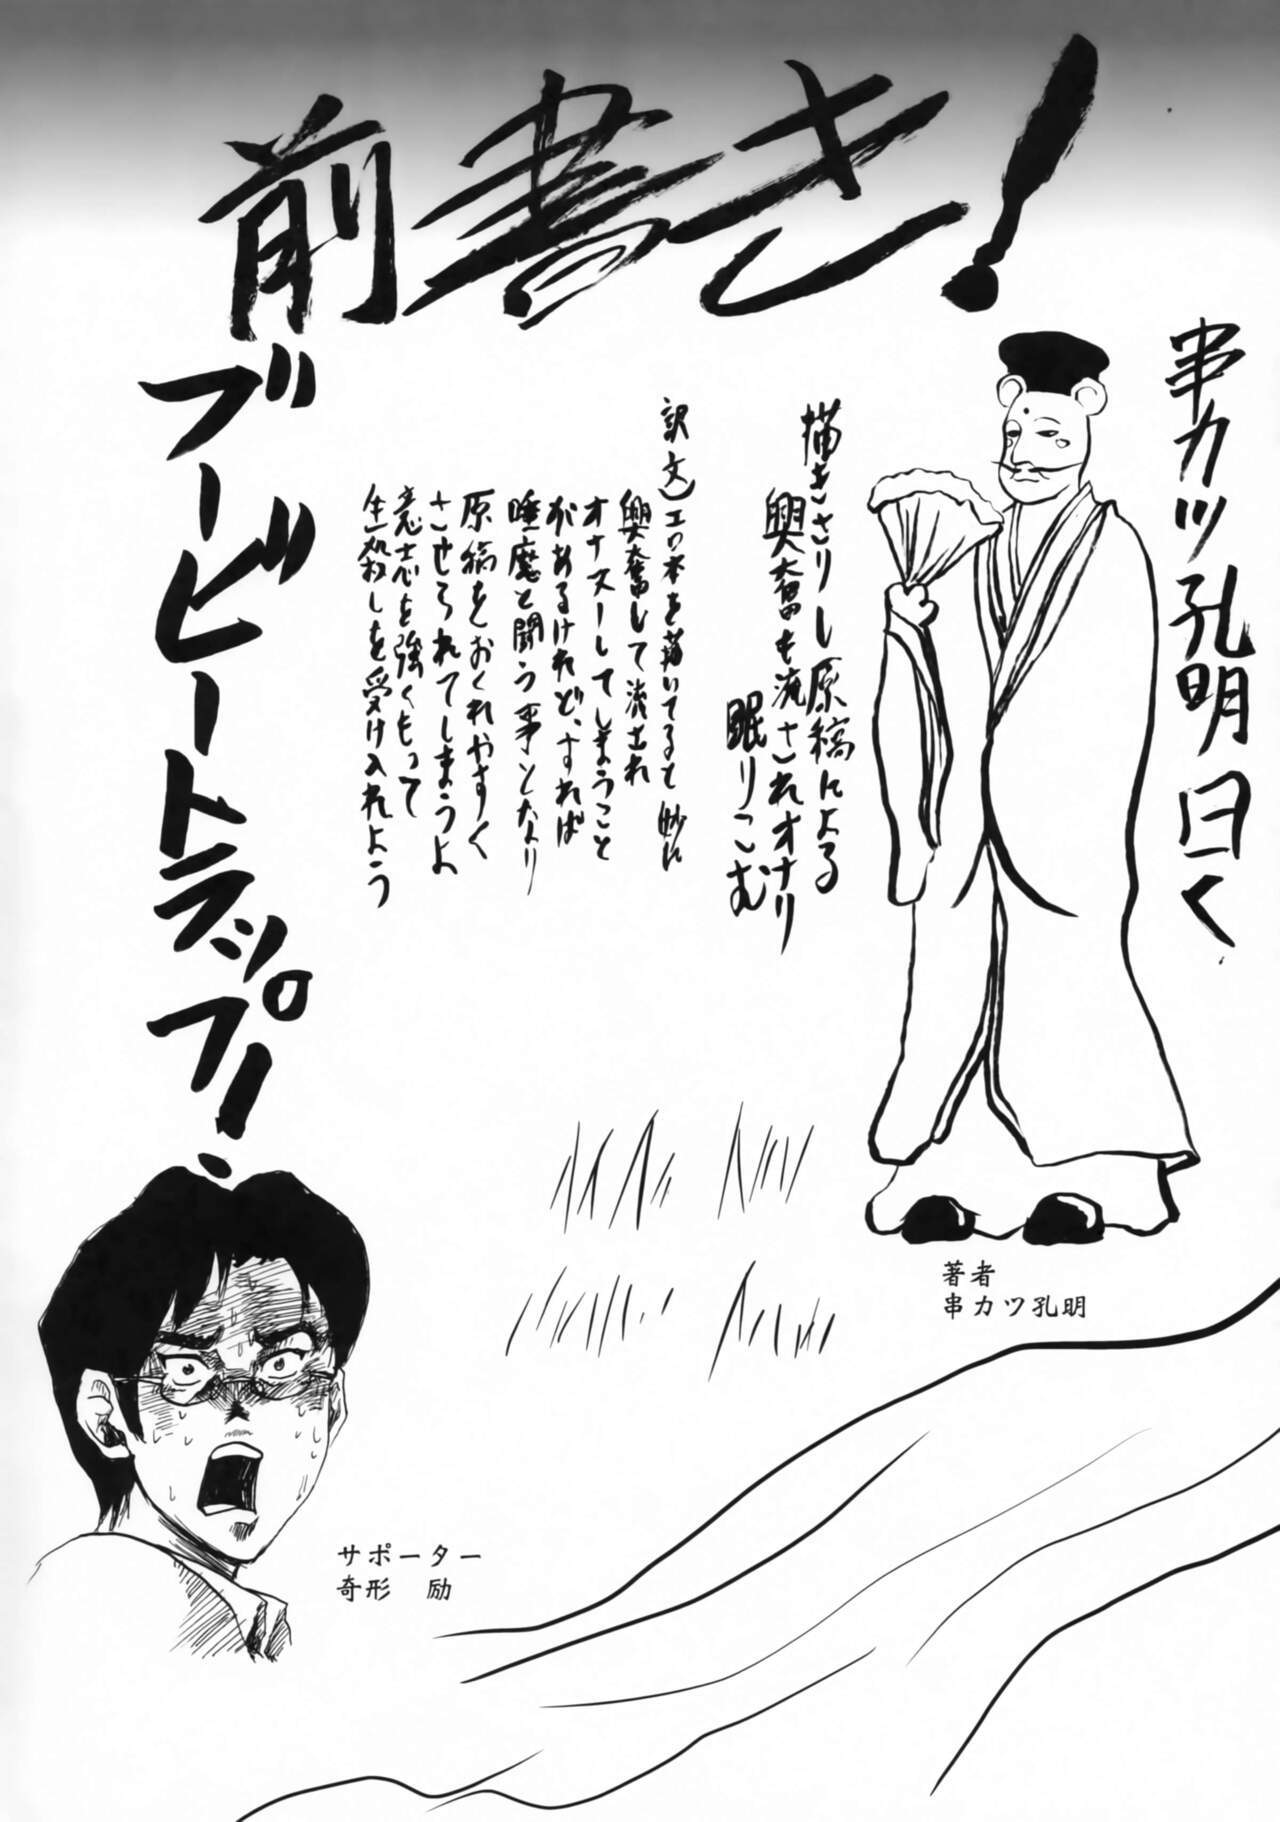 前書き!
串カツ孔明曰く、
描きさりし原稿による
興奮も流されオナり
眠りこむ
訳文)エロ本を描いてると妙に
興奮して流され
オナヌーしてしまうこと
があるけれど、すれば
睡魔と闘う事となり
原稿をおくれやすく
させられてしまうよ
意志を強くもって
生殺しを受け入れよう
ブービートラップ!
著者
串カツ孔明
サポーター
奇形 励